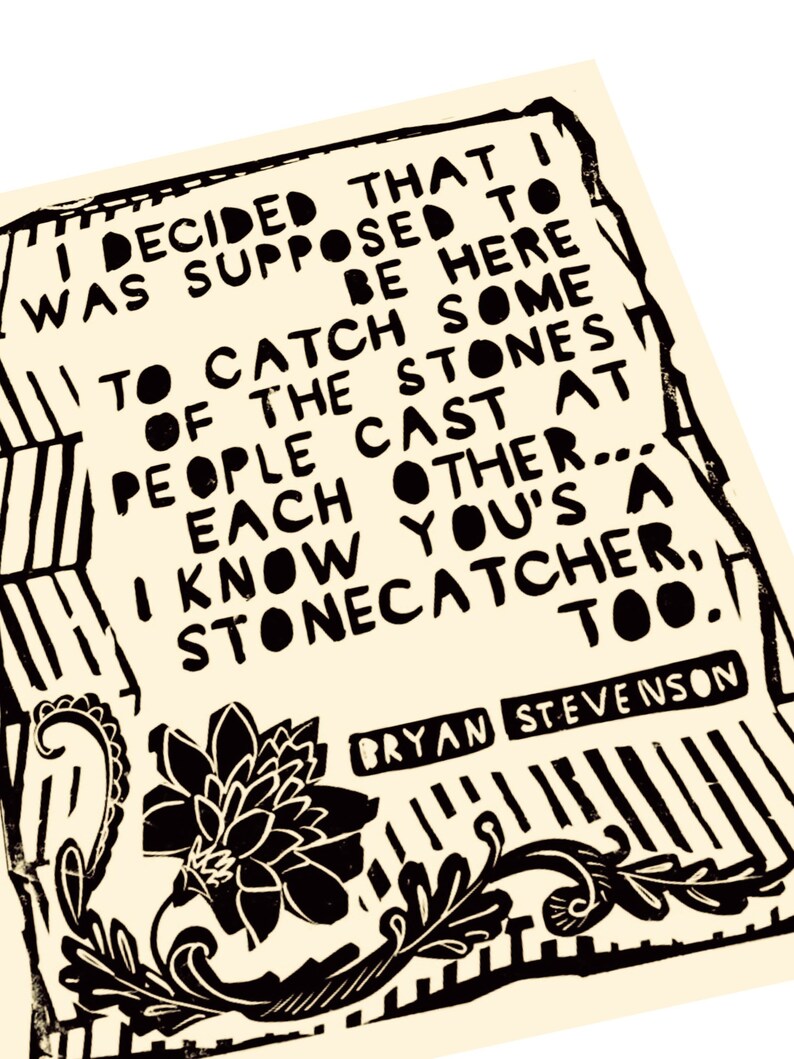 I DECIDED THAT I
WAS SUPPOSED TO
BE HERE
TO CATCH SOME
OF THE STONES
PEOPLE CAST AT
EACH OTHER...
I KNOW YOU'S A
STONECATCHER,
TOO.
BRYAN STEVENSON